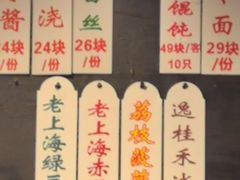 酱
24块
/份
浇
24块
/份
丝
26块
/份
馄
饨
49块/客
10只
面
29块
/份
老上海绿豆
老上海赤
荔枝菠萝
逸桂禾冰